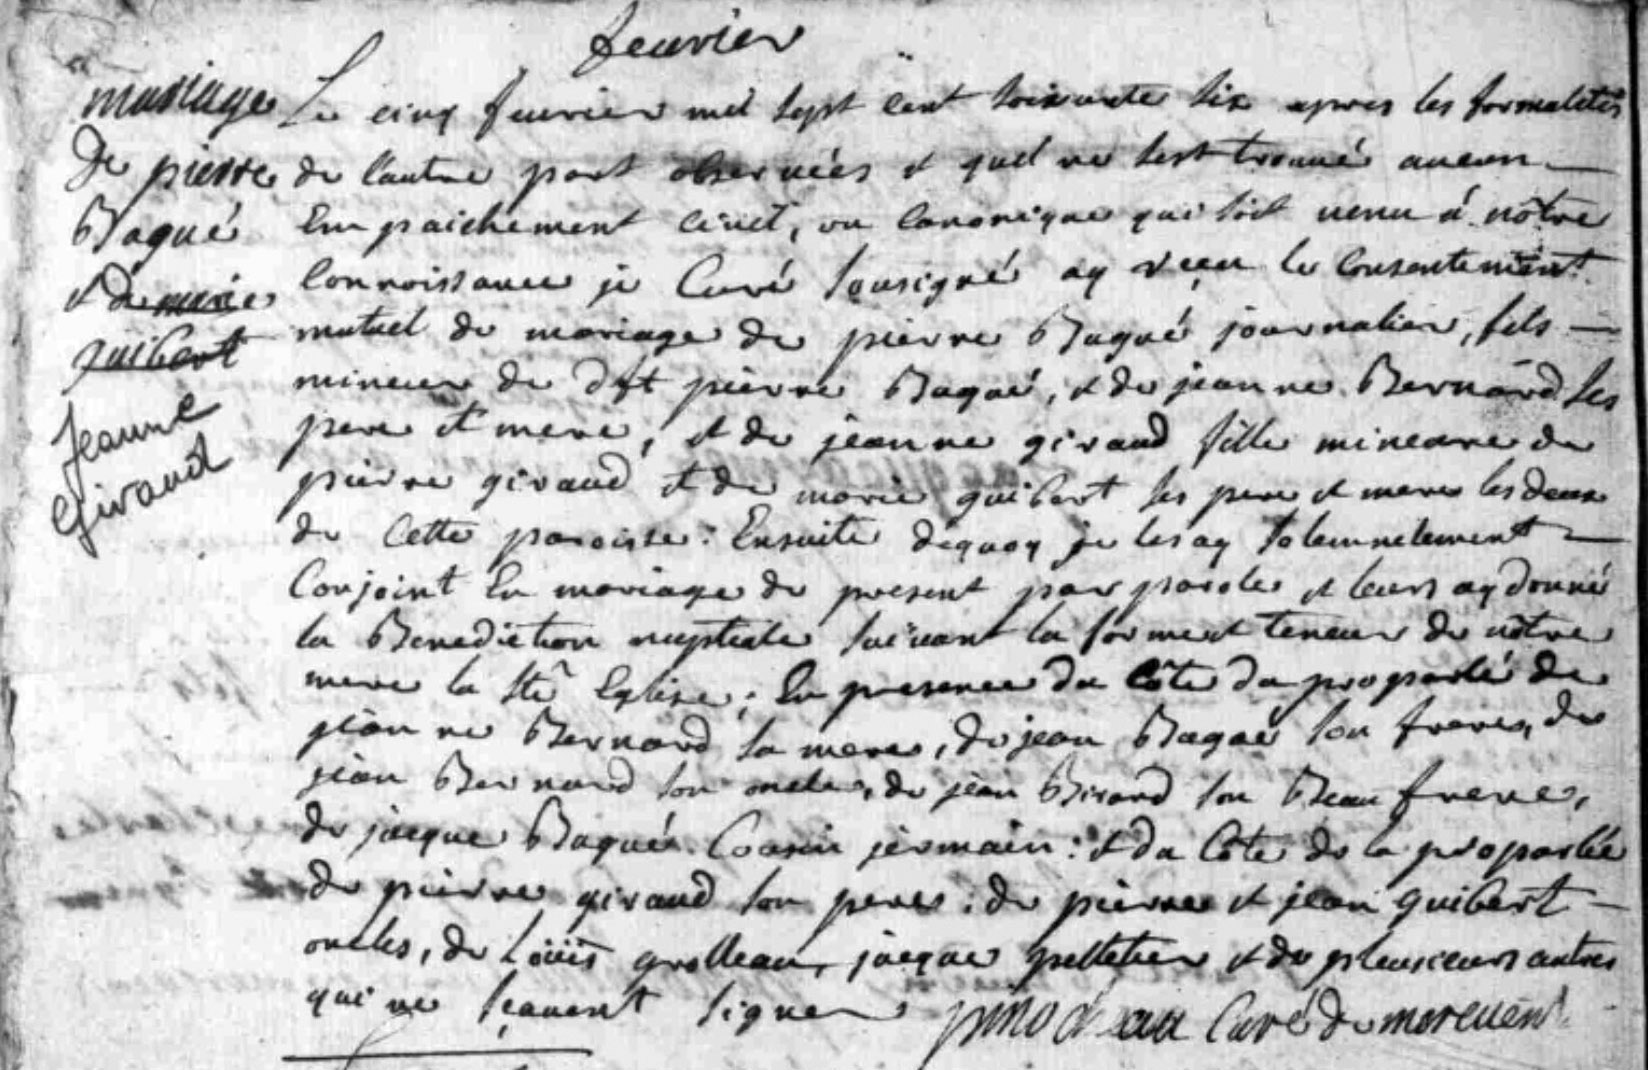 feurier
mariage
de pierre
Baqué
et de marie
guibert
Jeanne
Giraud
Le cinq feurier mil sept cent soixante six apres les formalités
de l'autre part obseruées et quil ne sest trouué aucun
Empaichement ciuil, ou canonique qui soit uenu á nôtre
connoissance je Curé sousigné ay reçeu le consentement
mutuel de mariage de pierre Baqué journalier, fils
mineur de dft pierre Baqué, et de jeanne Bernard ses
pere et mere, et de jeanne giraud fille mineure de
pierre giraud et de marie guibert ses pere et mere les deux
de cette paroisse: Ensuite dequoy je les ay solemnelement
Conjoint En mariage de present par parole et leurs ay donné
la Benediction nuptiale suiuant la forme et teneur de nôtre
mere la Ste Eglise; En presence du côté du proparlé de
jeanne Bernard sa mere, de jean Baqué son frere, de
jean Bernard son oncle, de jean Birard son Beau frere,
de jacque Baqué Cousin jermain: et du côte de la proparlée
de pierre giraud son pere: de pierre et jean guibert
oncles, de Loüis grolleau, jacque pelletier et de plusieurs autres
qui ne sçauent signer pinodeau Curé de moreuent